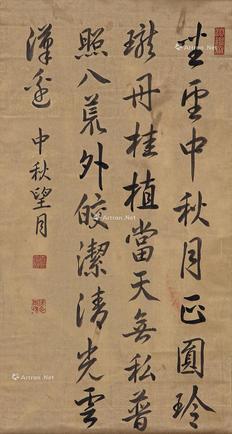 中秋月正圓玲
瓏丹桂植當天無私普
照八荒外皎潔清光雲
漢邊 中秋望月
Artron.Net
Artron.Net
Artron.Net
Artron.Net